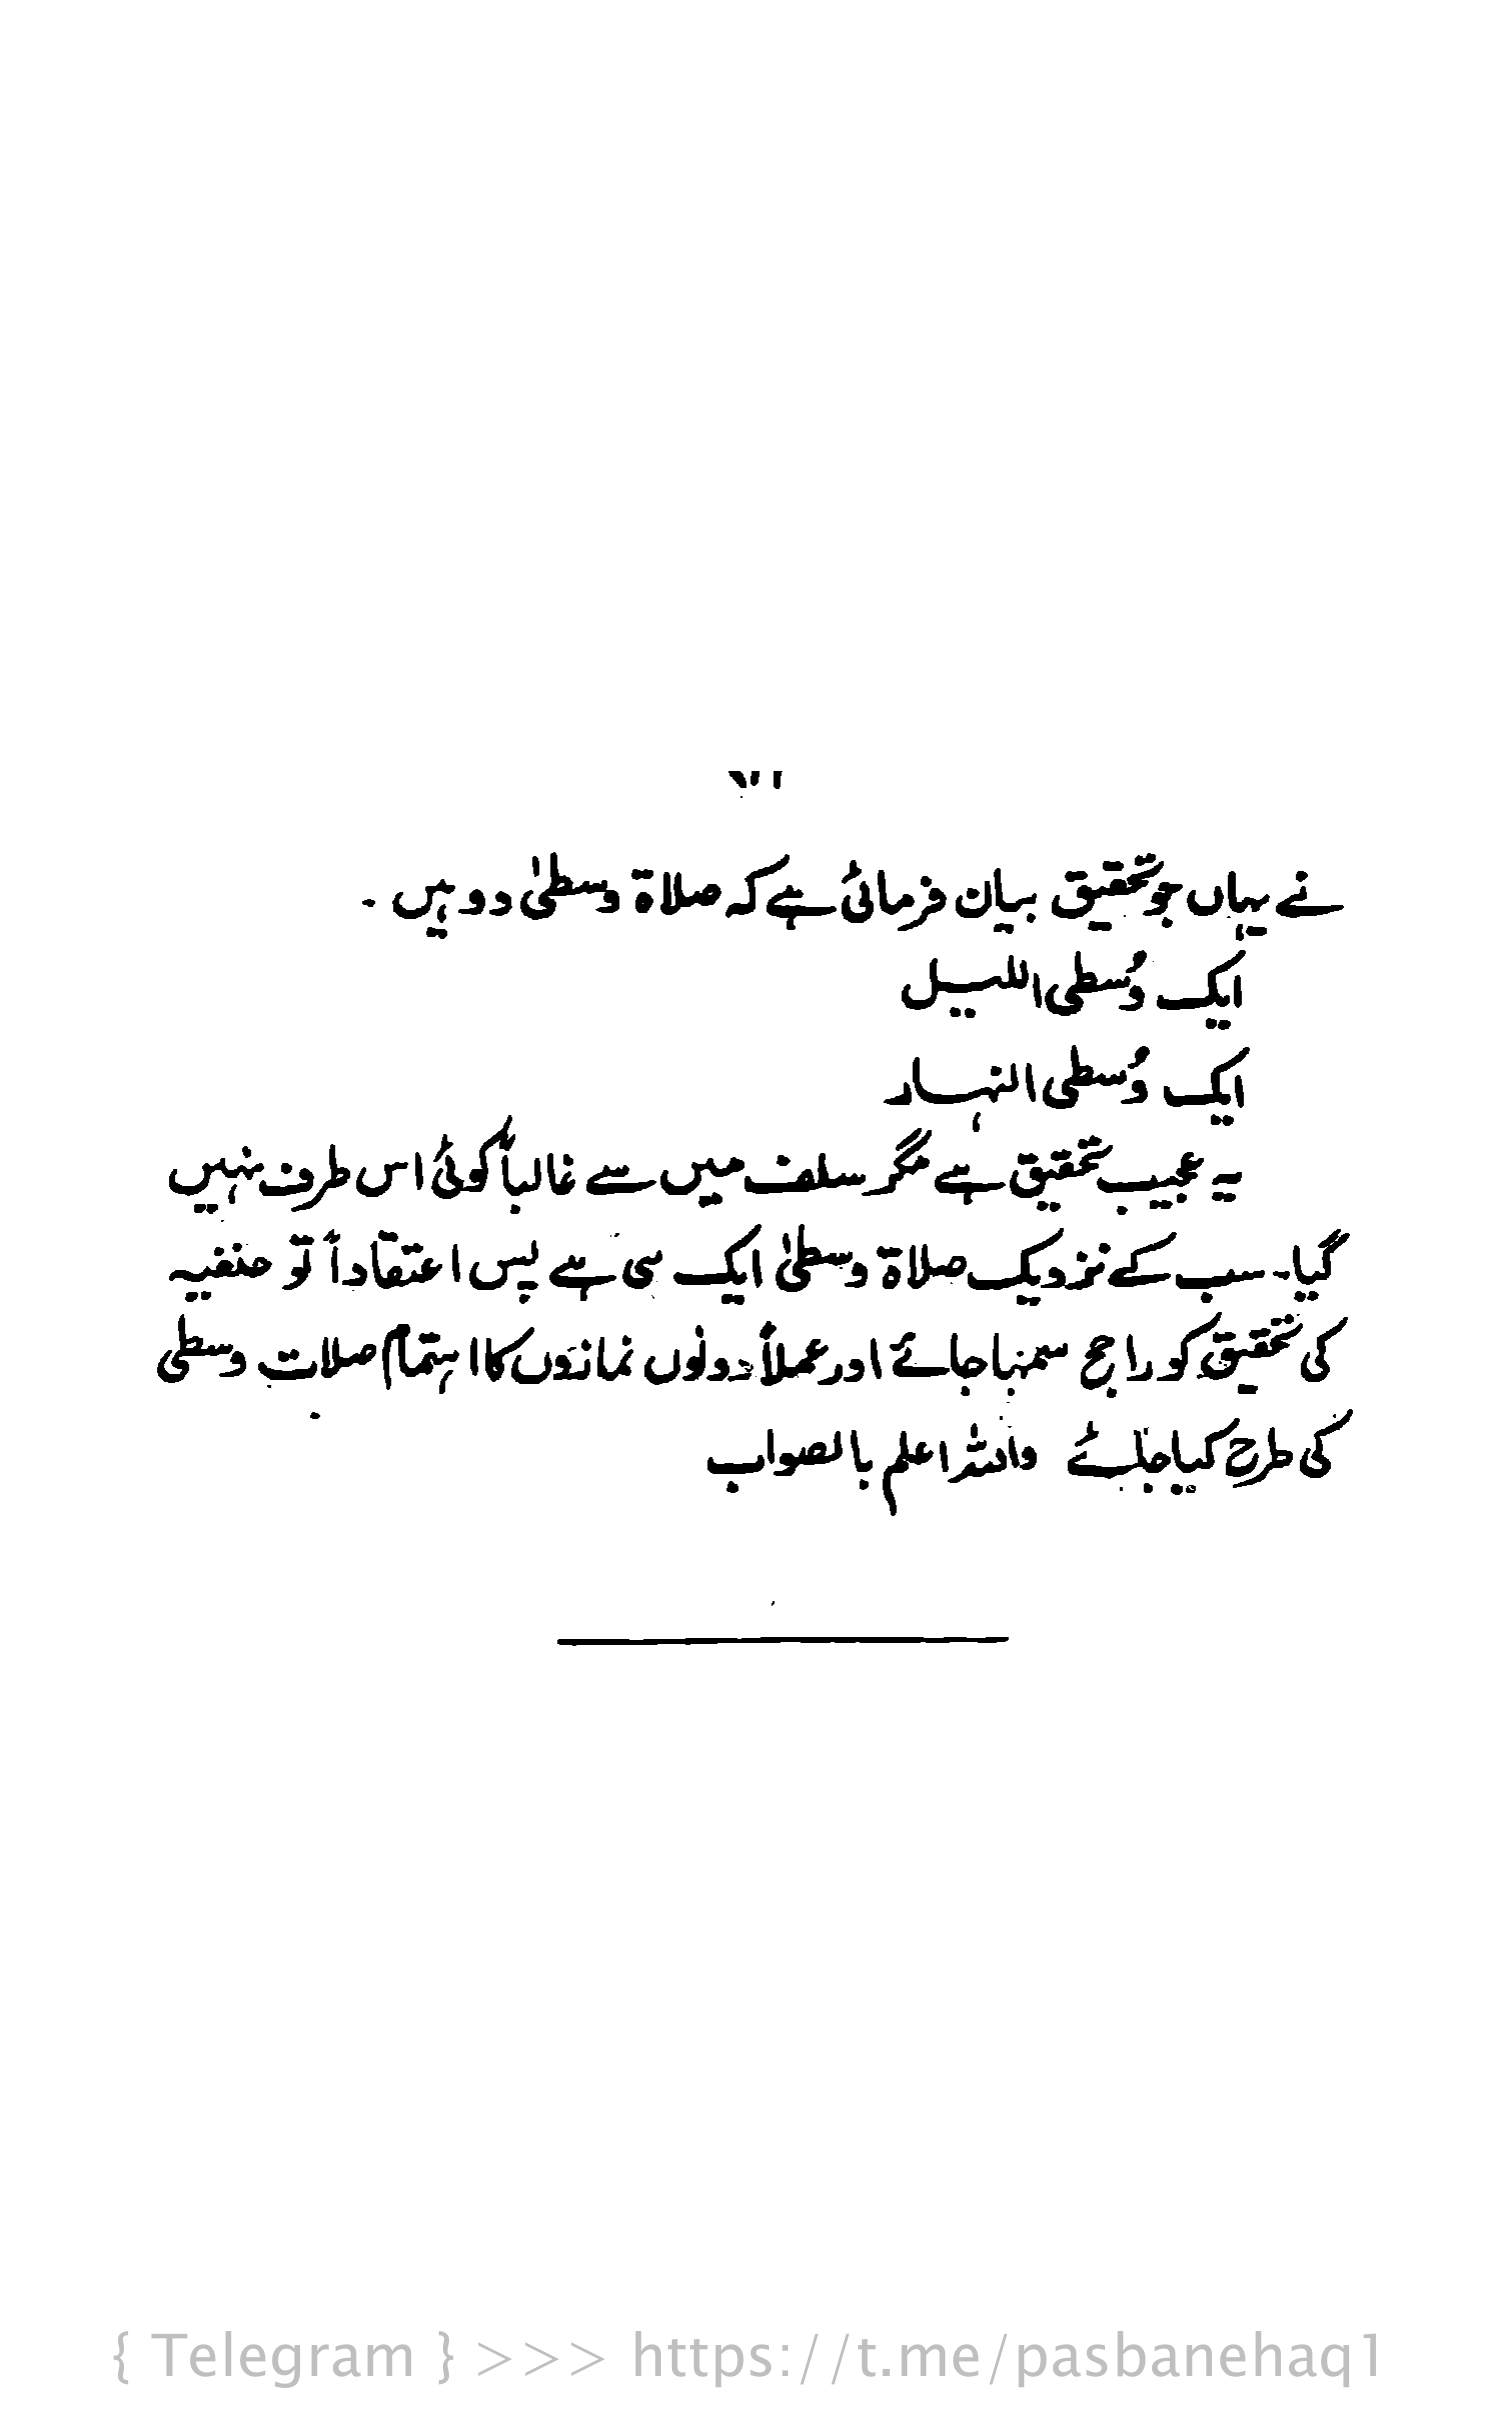 نے یہاں جو تحقیق بیان فرمائی ہے کہ صلاۃ وسطیٰ دو ہیں ۔
ایک وُسطی اللیل
ایک وُسطی النہار
یہ عجیب تحقیق ہے مگر سلف میں سے غالباً کوئی اس طرف نہیں
گیا۔ سب کے نزدیک صلاۃ وسطیٰ ایک ہی ہے پس اعتقاداً تو حنفیہ
کی تحقیق کو راجح سمہا جائے اور عملاً دونوں نمازوں کا اہتمام صلات وسطی
کی طرح کیا جائے واللہ اعلم بالصواب
{ Telegram } >>> https://t.me/pasbanehaq1